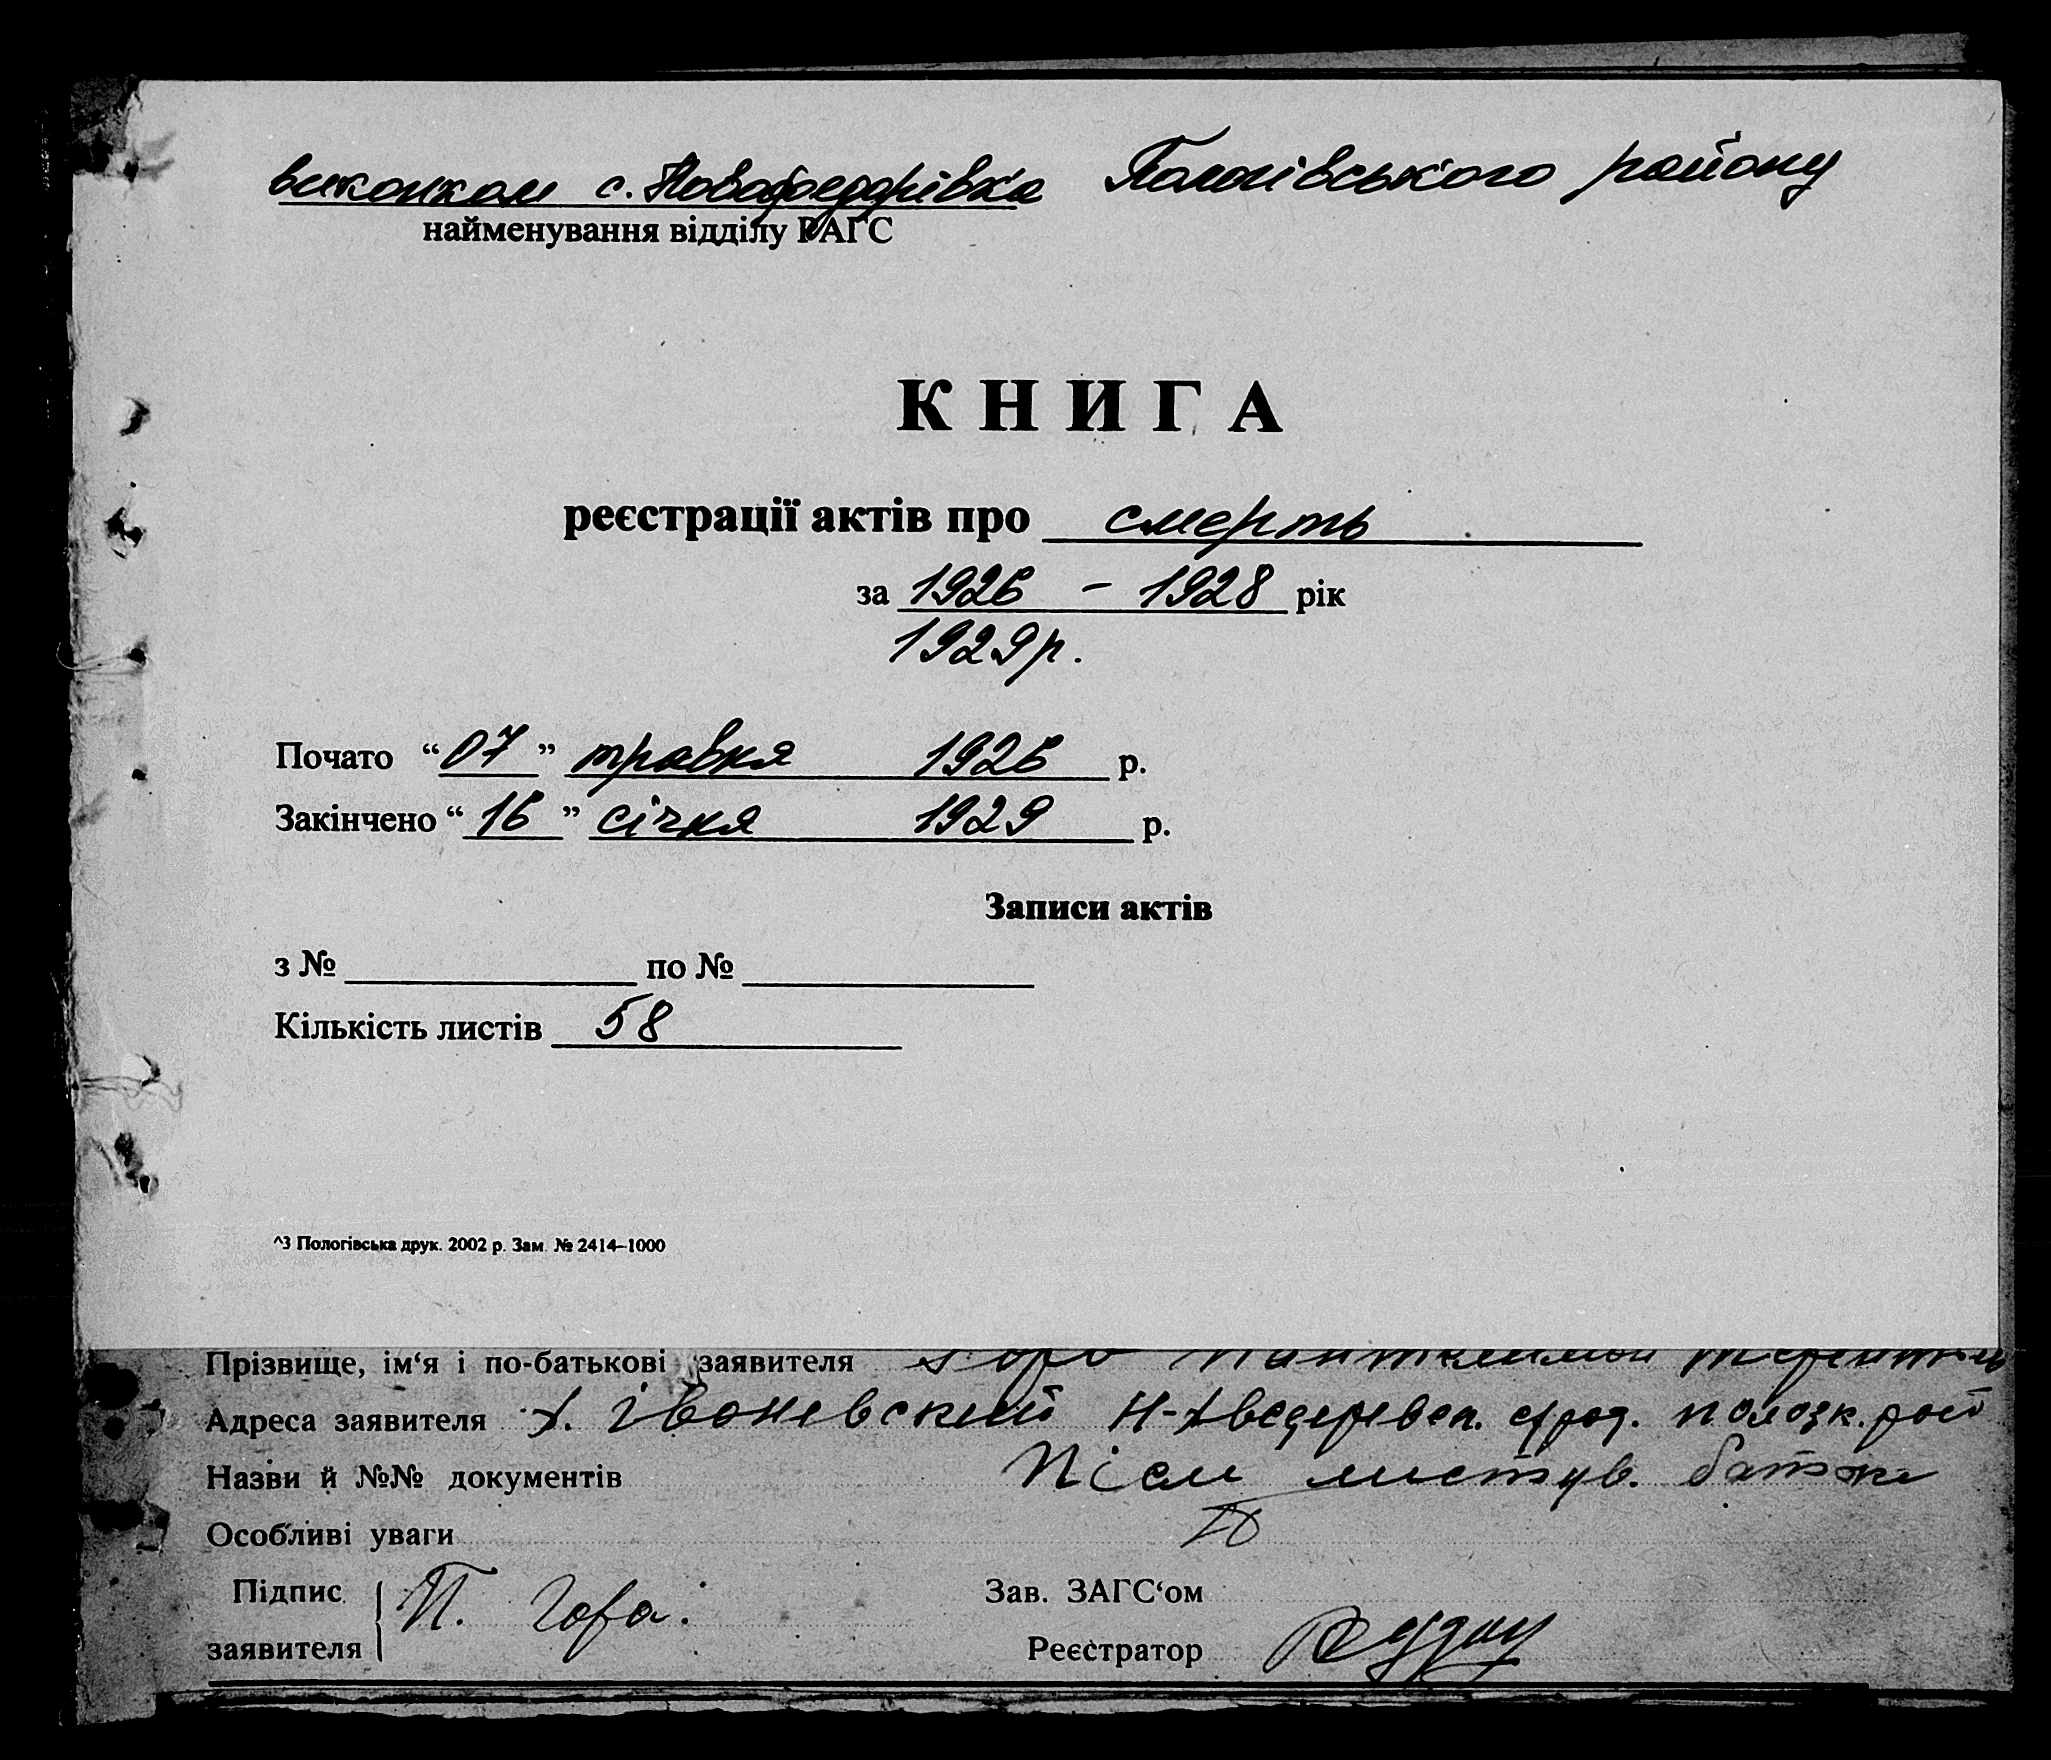 виконком с. Новофедорівка Пологівського району
найменування відділу РАГС
КНИГА
реєстрації актів про смерть
за 1926 – 1928 рік
1929 р.
Почато “07” травня 1926 р.
Закінчено “16” січня 1929 р.
Записи актів
з № по №
Кількість листів 58
^3 Пологівська друк. 2002 р. Зам. № 2414–1000
Прізвище, ім‘я і по-батькові заявителя
Адреса заявителя х. Івоневский
Назви й №№ документів
Особливі уваги
Підпис заявителя П. Гора.
Зав. ЗАГС‘ом
Реєстратор